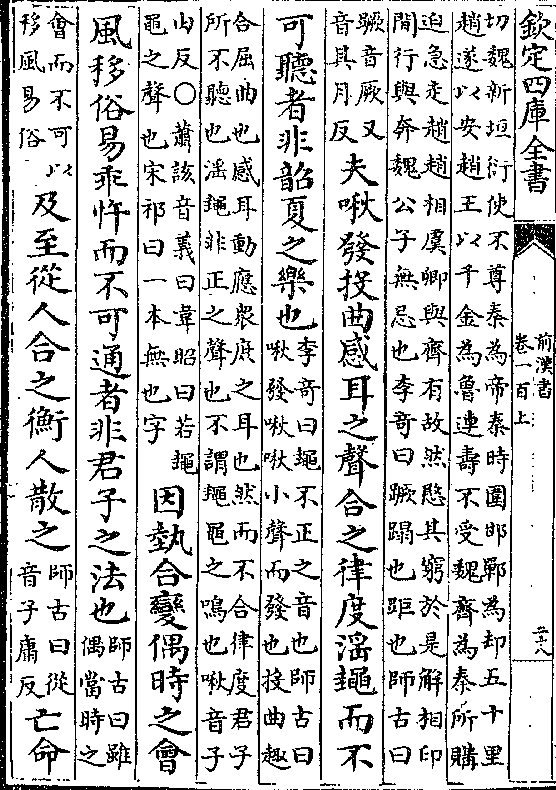 欽定四庫全書
前漢書
卷一百上
二十八
切魏新垣衍使不尊秦為帝秦時圍邯鄲為却五十里
趙遂以安趙王以千金為魯連壽不受魏齊為秦所購
迫急走趙趙相虞卿與齊有故然愍其窮於是解相印
間行與奔魏公子無忌也李竒曰蹶蹋也距也師古曰
蹶音厥又
音其月反
夫啾發投曲感耳之聲合之律度滛䵷而不
可聽者非韶夏之樂也
李竒曰䵷不正之音也師古曰
啾發啾啾小聲而發也投曲趣
合屈曲也感耳動應衆庶之耳也然而不合律度君子
所不聽也滛䵷非正之聲也不謂䵷黽之鳴也啾音子
由反○蕭該音義曰韋昭曰若䵷
黽之聲也宋祁曰一本無也字
因埶合變偶時之會
風移俗易乖忤而不可通者非君子之法也
師古曰雖
偶當時之
會而不可以
移風易俗
及至從人合之衡人散之
師古曰從
音子庸反
亡命